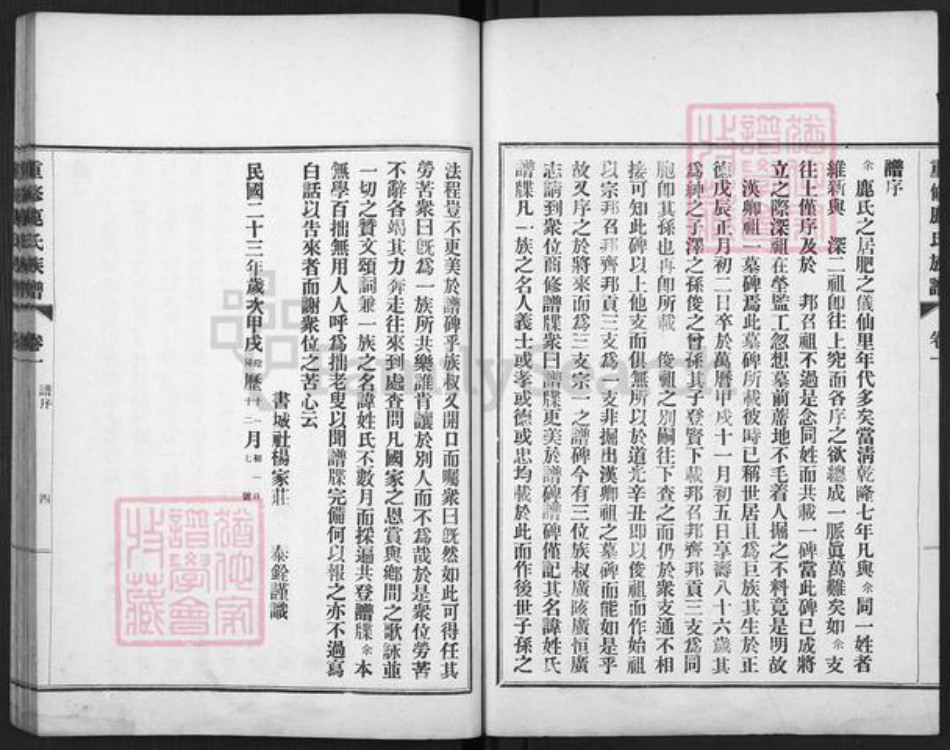 譜序
余鹿氏之居肥之儀仙里年代多矣當淸乾隆七年凡與余同一姓者
維新與 深二祖卽往上究而各序之欲總成一脈眞萬難矣如余支
往上僅序及於 邦召祖不過是念同姓而共載一碑當此碑已成將
立之際深祖在塋監工忽想墓前蓆地不毛着人掘之不料竟是明故
漢卿祖一墓碑焉此墓碑所載彼時已稱世居且爲巨族其生於正
德戊辰正月初二日卒於萬曆甲戌十一月初五日享壽八十六歲其
爲紳之子澤之孫俊之曾孫其子登賢下載邦召邦齊邦貢三支爲同
胞卽其孫也再卽所載 俊祖之別嗣往下查之而仍於衆支通不相
接可知此碑以上他支而俱無所以於道光辛丑卽以俊祖而作始祖
以宗邦召邦齊邦貢三支爲一支非掘出漢卿祖之墓碑而能如是乎
故又序之於將來而爲三支宗一之譜碑今有三位族叔廣陔廣恒廣
志請到衆位商修譜牒衆曰譜牒更美於譜碑譜碑僅記其名諱姓氏
譜牒凡一族之名人義士或孝或德或忠均載於此而作後世子孫之
法程豈不更美於譜碑乎族叔又開口而囑衆曰旣然如此可得任其
勞苦衆曰旣爲一族所共樂誰肯讓於別人而不爲哉於是衆位勞苦
不辭各竭其力奔走往來到處查問凡國家之恩賞與鄉間之歌詠並
一切之贊文頌詞兼一族之名諱姓氏不數月而採遍共登譜牒余本
無學百拙無用人人呼爲拙老叟以聞譜牒完備何以報之亦不過寫
白話以告來者而謝衆位之苦心云
書城社楊家莊 泰銓謹識
民國二十三年歲次甲戌 曆 月
重修鹿氏族譜 卷一 譜序 四
重修鹿氏族譜 卷一